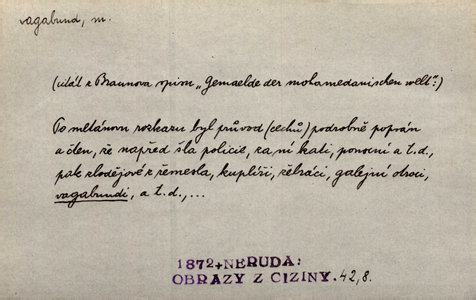 vagabund, m.
(citát z Braunova spisu „Gemaelde der mohamedanischen welt":)
Po sultánovu rozkazu byl průvod (cechů) podrobně popsán
a čten, že napřed šla policie, za ní kati, ponocní a t.d.,
pak zlodějové z řemesla, kuplíři, žebráci, galejní otroci,
vagabundi, a t.d.,...
1872+NERUDA:
OBRAZY Z CIZINY. 42,8.